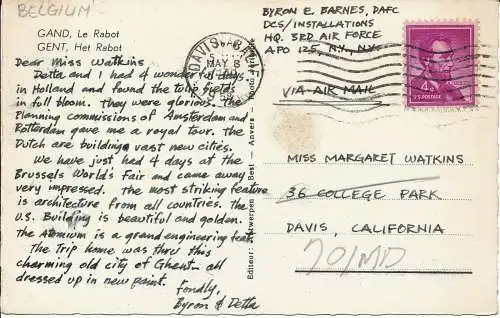 BELGIUM
GAND, Le Rabot
GENT, Het Rabot
Dear Miss Watkins
Detta and I had 4 wonderful days
in Holland and found the tulip fields
in full bloom. They were glorious. The
Planning commissions of Amsterdam and
Rotterdam gave me a royal tour. The
Dutch are building vast new cities.
We have just had 4 days at the
Brussels World's Fair and came away
very impressed. The most striking feature
is architecture from all countries. The
U.S. Building is beautiful and golden.
The Atomium is a grand engineering feat.
The trip home was thru this
charming old city of Ghent - all
dressed up in new paint.
Fondly,
Byron & Detta
Editeur: Antwerpen Best Anvers
DAVIS
MAY 8
BYRON E. BARNES, DAFC
DCS/INSTALLATIONS
HQ. 3RD AIR FORCE
APO 125, N.Y., N.Y.
VIA AIR MAIL
4¢
U.S. POSTAGE
MISS MARGARET WATKINS
36 COLLEGE PARK
DAVIS, CALIFORNIA
70/MD